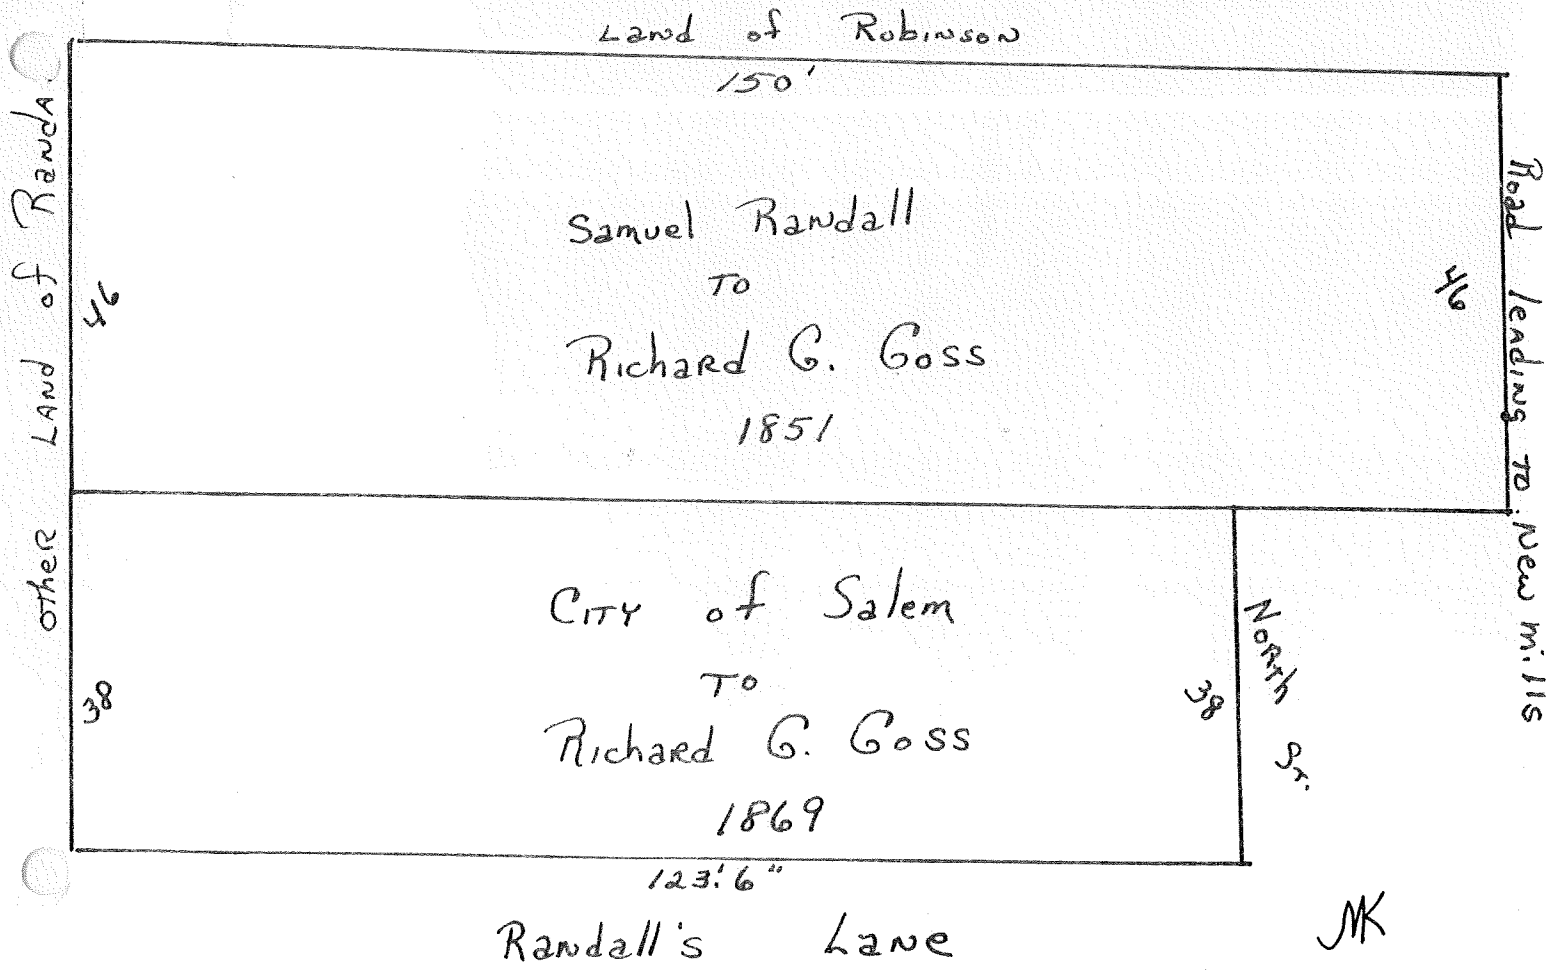 Land of Robinson
150'
Other Land of Randa
46
Samuel Randall
To
Richard G. Goss
1851
46
Road leading to New Mills
City of Salem
To
Richard G. Goss
1869
38
38
North St.
123' 6"
Randall's Lane
MK